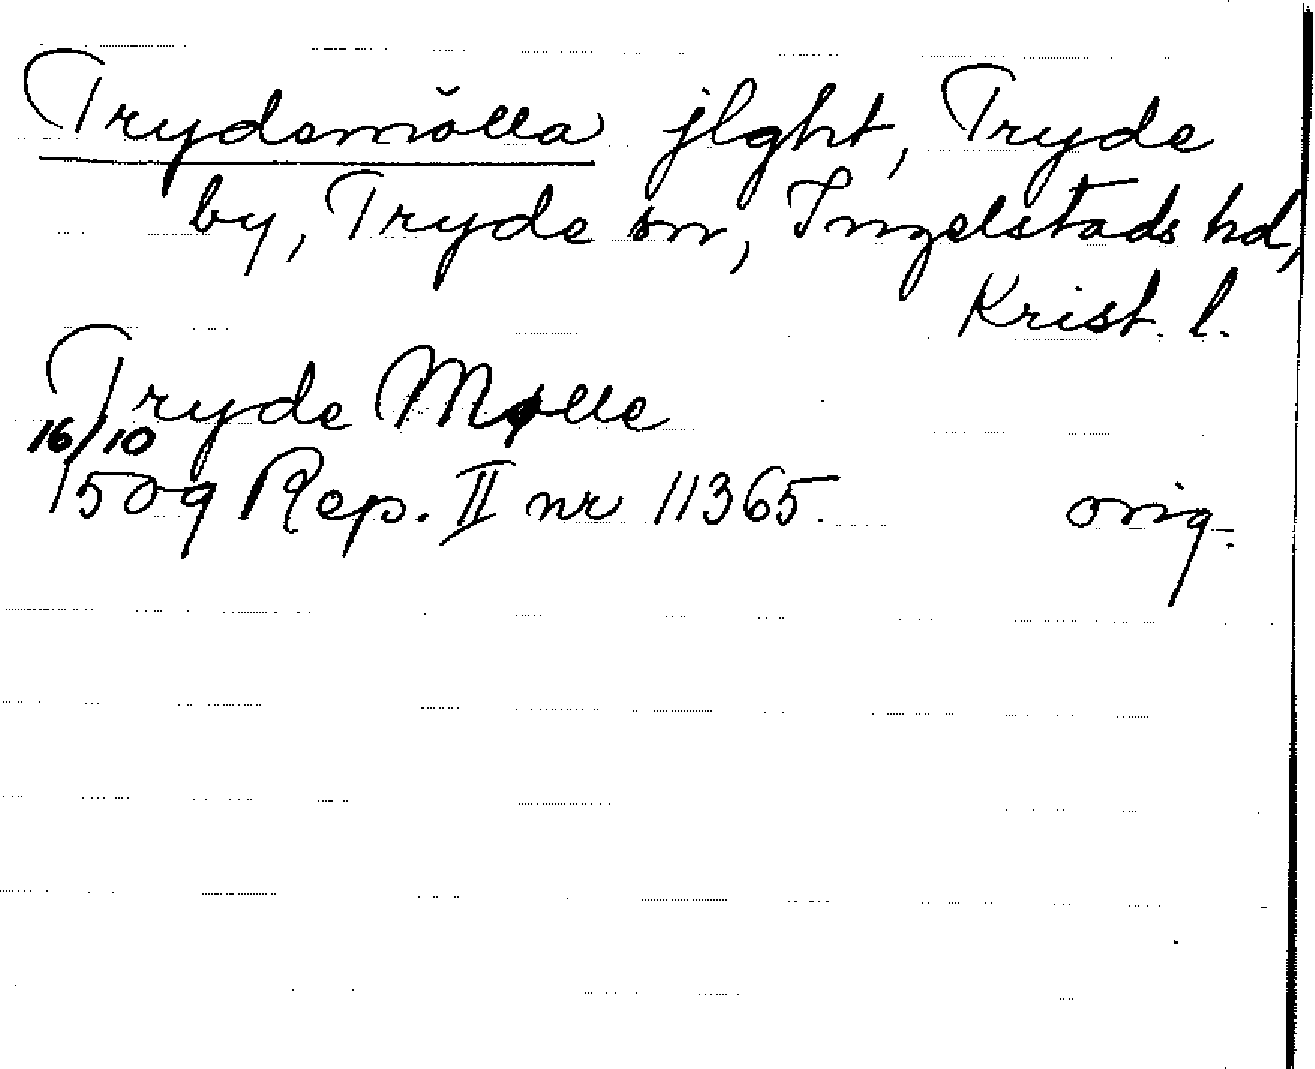 Trydemölla jlght, Tryde
by, Tryde sn, Ingelstads hd,
Krist. l.
Tryde Mølle
16/10
1509 Rep. II nr 11365. orig.